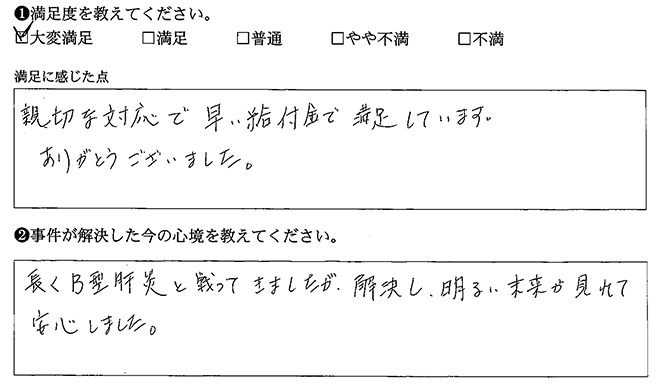 ❶満足度を教えてください。
☑大変満足 □満足 □普通 □やや不満 □不満
満足に感じた点
親切な対応で早い給付金で満足しています。
ありがとうございました。
❷事件が解決した今の心境を教えてください。
長くB型肝炎と戦ってきましたが、解決し、明るい未来が見れて
安心しました。